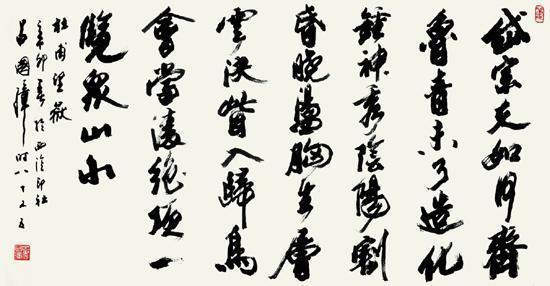 岱宗夫如何齊
魯青未了造化
鍾神秀陰陽割
昏曉盪胸生層
雲決眥入歸鳥
會當凌絕頂一
覽衆山小
杜甫望嶽
辛卯春於西泠印社
吕國璋时八十又五